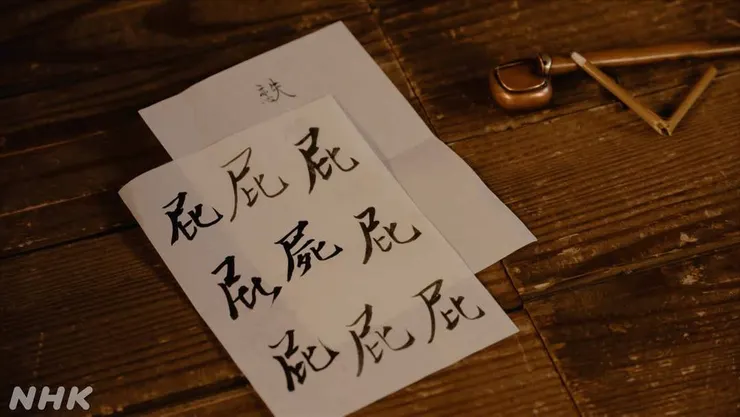 屁屁屁
屁屍屁
屁屁屁
NHK